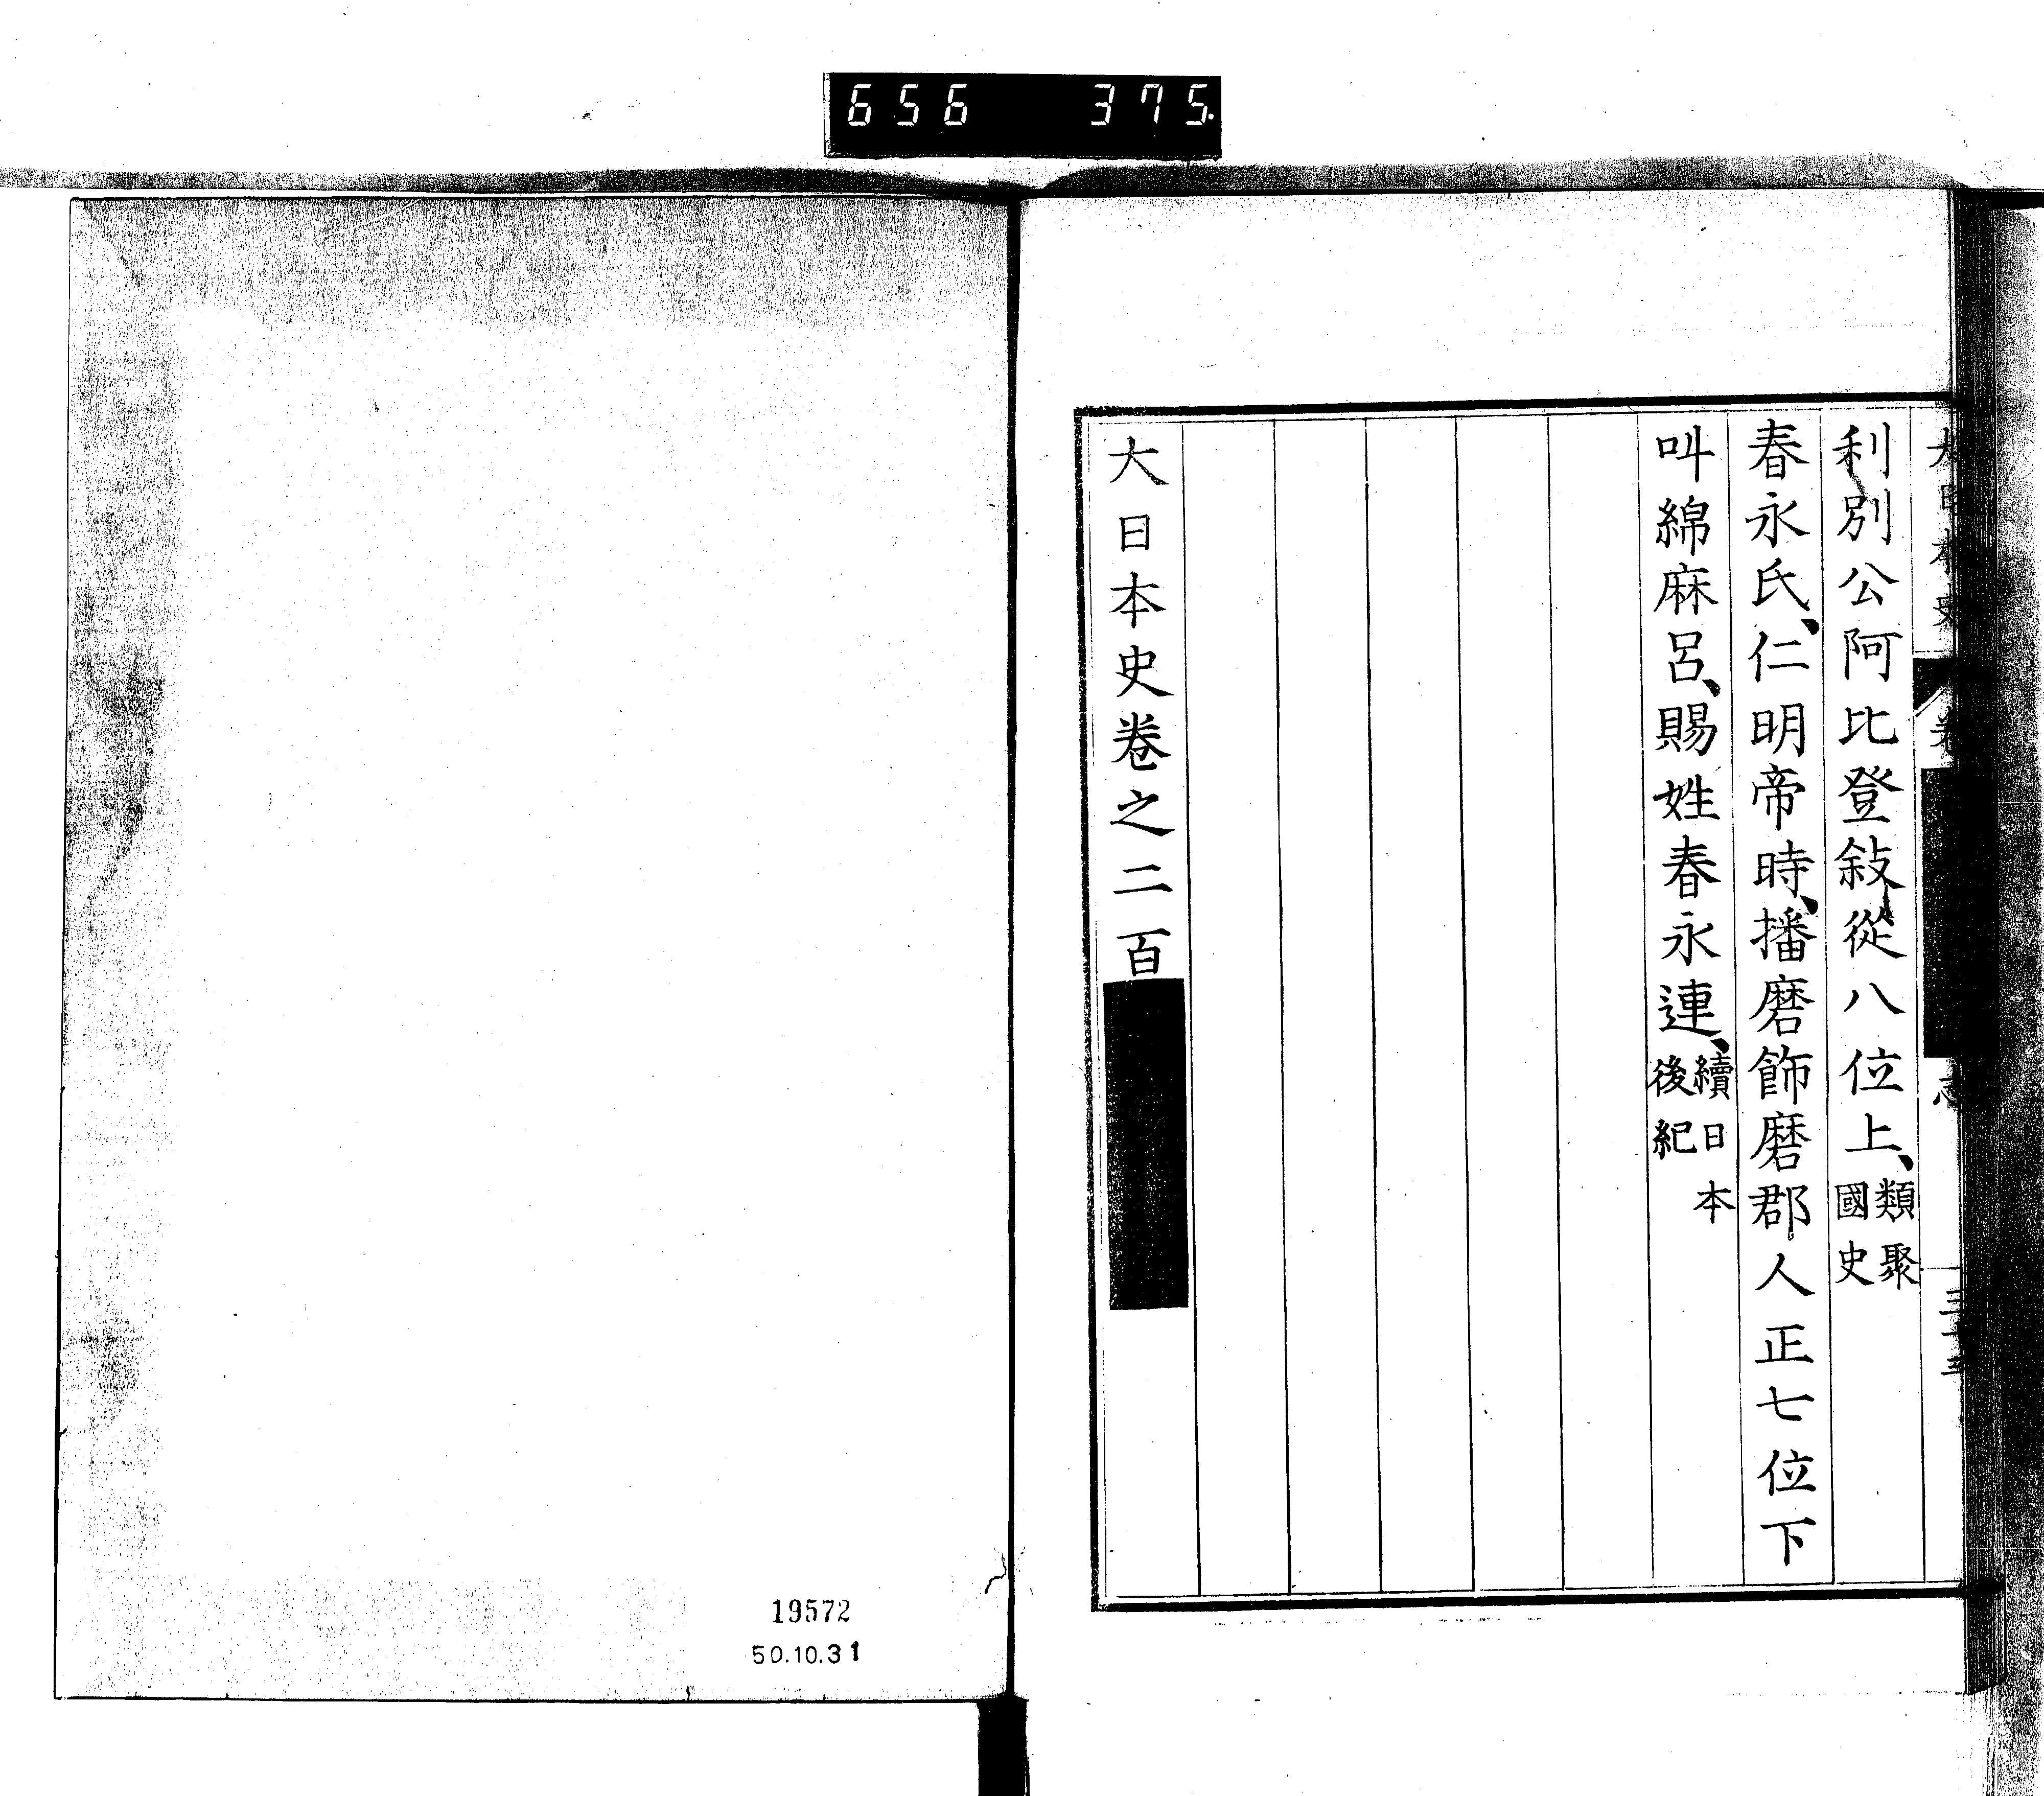 656 375
利別公阿比登敍從八位上、類聚國史
春永氏、仁明帝時、播磨飾磨郡人正七位下
叫綿麻呂、賜姓春永連、續日本後紀
大日本史卷之二百
19572
50.10.31